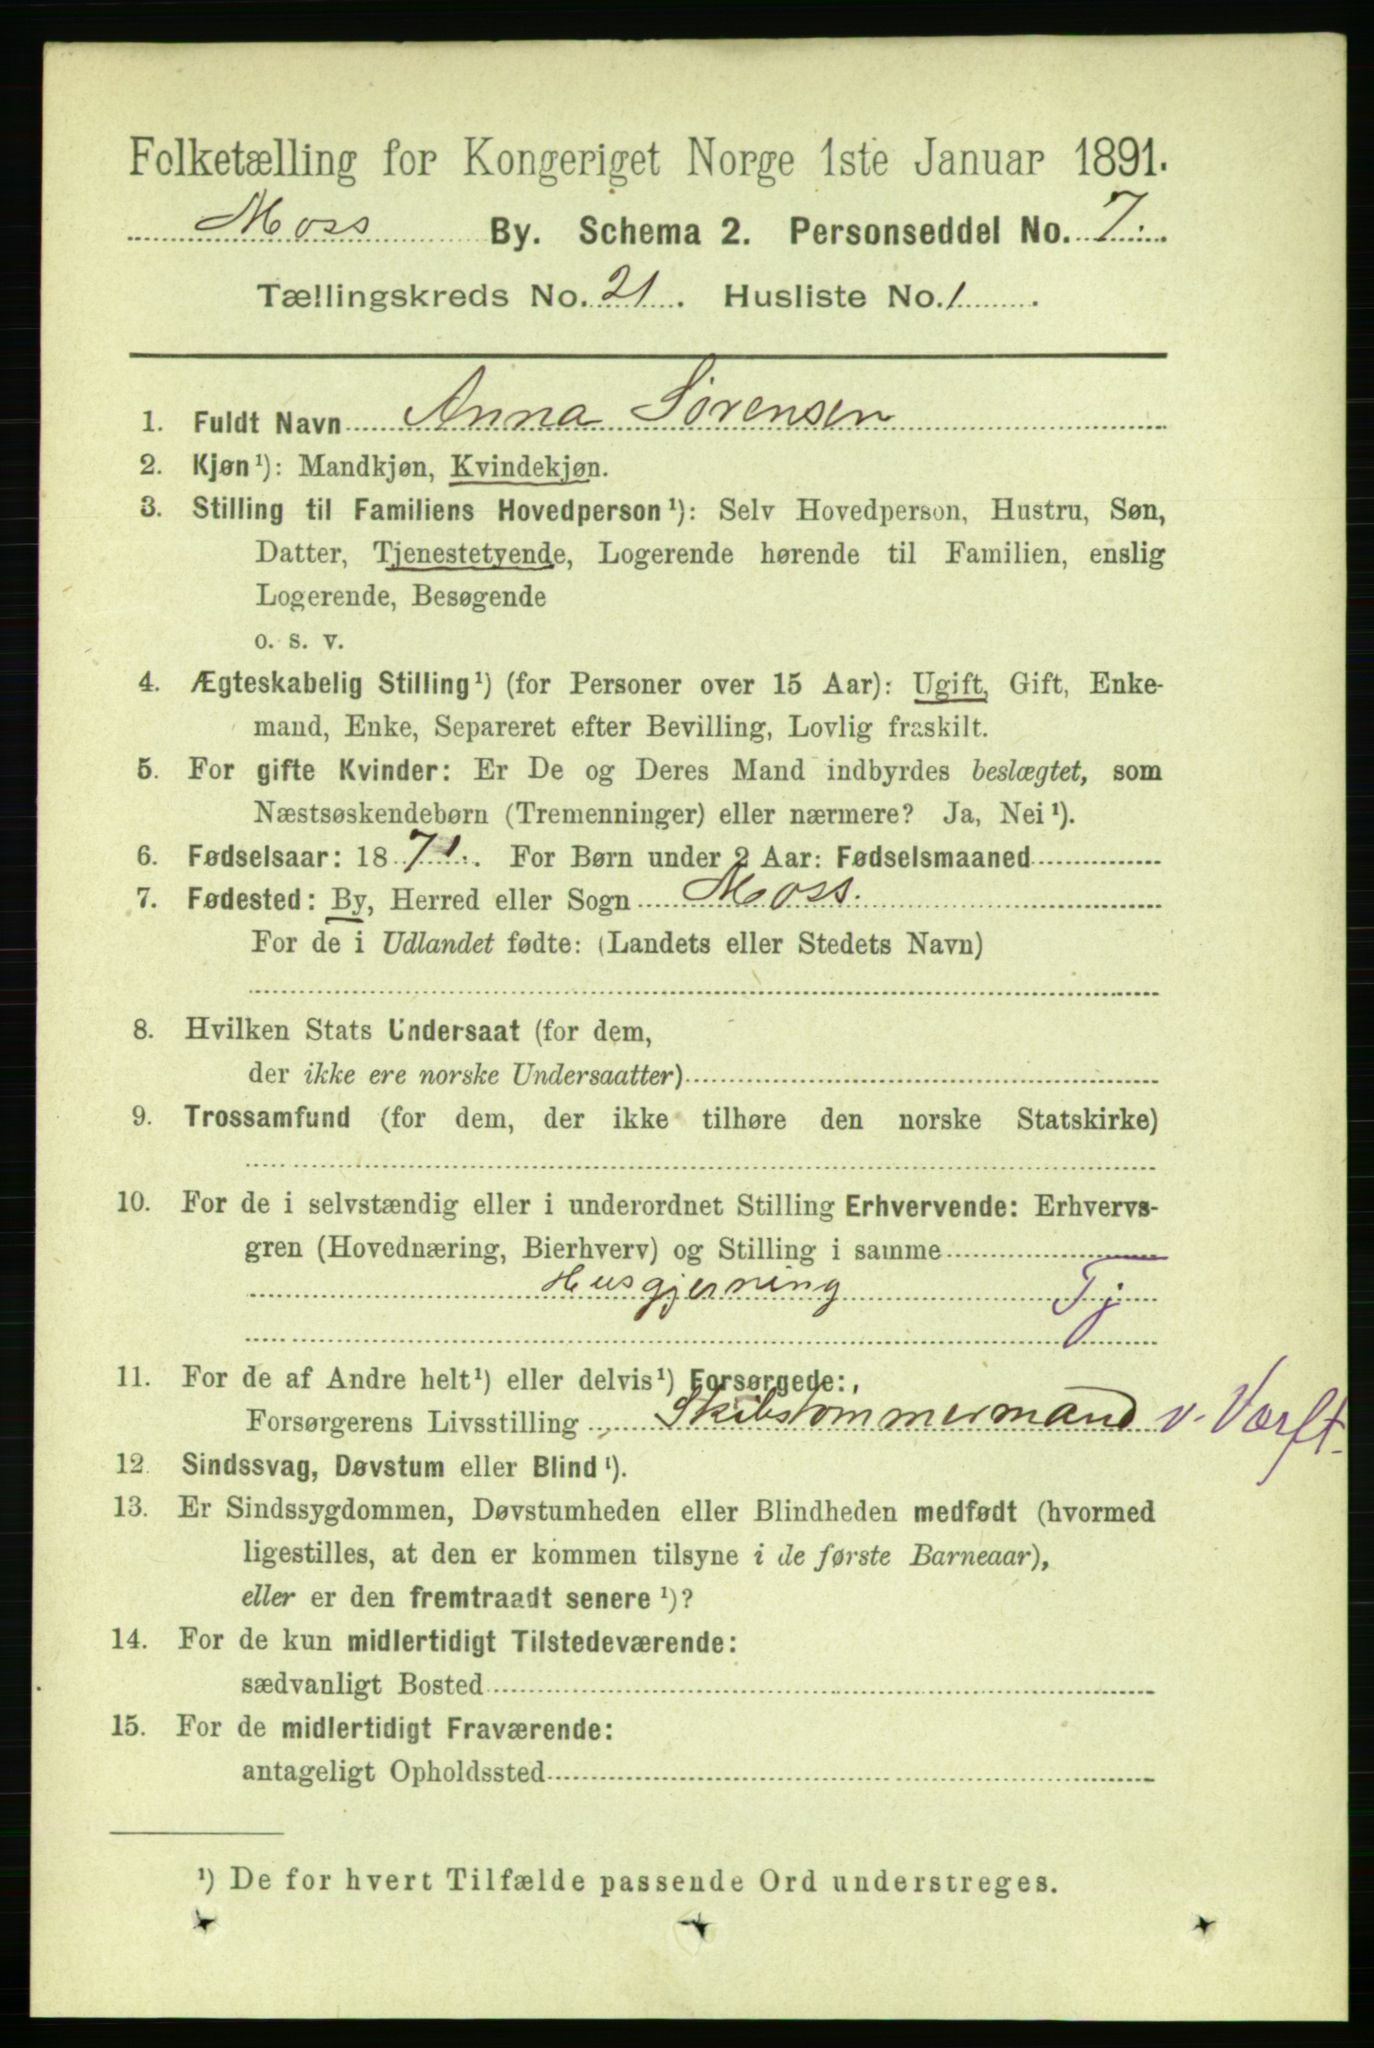 Folketælling for Kongeriget Norge 1ste Januar 1891.
Moss By. Schema 2. Personseddel No. 7.
Tællingskreds No. 21. Husliste No. 1.
1. Fuldt Navn Anna Sørensen
2. Kjøn¹): Mandkjøn, Kvindekjøn.
3. Stilling til Familiens Hovedperson¹): Selv Hovedperson, Hustru, Søn,
Datter, Tjenestetyende, Logerende hørende til Familien, enslig
Logerende, Besøgende
o. s. v.
4. Ægteskabelig Stilling¹) (for Personer over 15 Aar): Ugift, Gift, Enke-
mand, Enke, Separeret efter Bevilling, Lovlig fraskilt.
5. For gifte Kvinder: Er De og Deres Mand indbyrdes beslægtet, som
Næstsøskendebørn (Tremenninger) eller nærmere? Ja, Nei¹).
6. Fødselsaar: 1871. For Børn under 2 Aar: Fødselsmaaned
7. Fødested: By, Herred eller Sogn Moss.
For de i Udlandet fødte: (Landets eller Stedets Navn)
8. Hvilken Stats Undersaat (for dem,
der ikke ere norske Undersaatter)
9. Trossamfund (for dem, der ikke tilhøre den norske Statskirke)
10. For de i selvstændig eller i underordnet Stilling Erhvervende: Erhvervs-
gren (Hovednæring, Bierhverv) og Stilling i samme
Husgjerning Tj
11. For de af Andre helt¹) eller delvis¹) Forsørgede:
Forsørgerens Livsstilling Skibstømmermand v. Værft.
12. Sindssvag, Døvstum eller Blind¹).
13. Er Sindssygdommen, Døvstumheden eller Blindheden medfødt (hvormed
ligestilles, at den er kommen tilsyne i de første Barneaar),
eller er den fremtraadt senere¹)?
14. For de kun midlertidigt Tilstedeværende:
sædvanligt Bosted
15. For de midlertidigt Fraværende:
antageligt Opholdssted
¹) De for hvert Tilfælde passende Ord understreges.